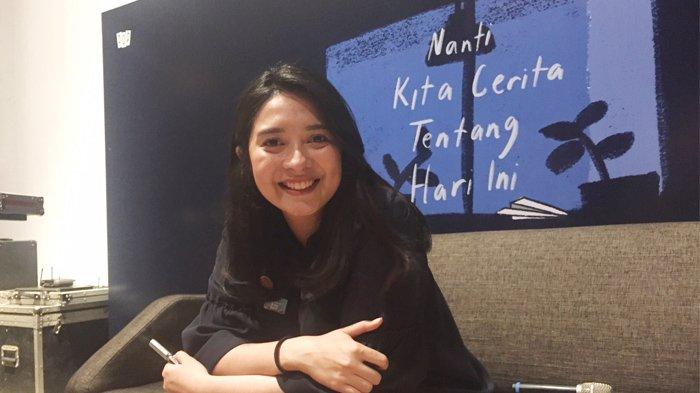 Nanti
Kita Cerita
Tentang
Hari Ini